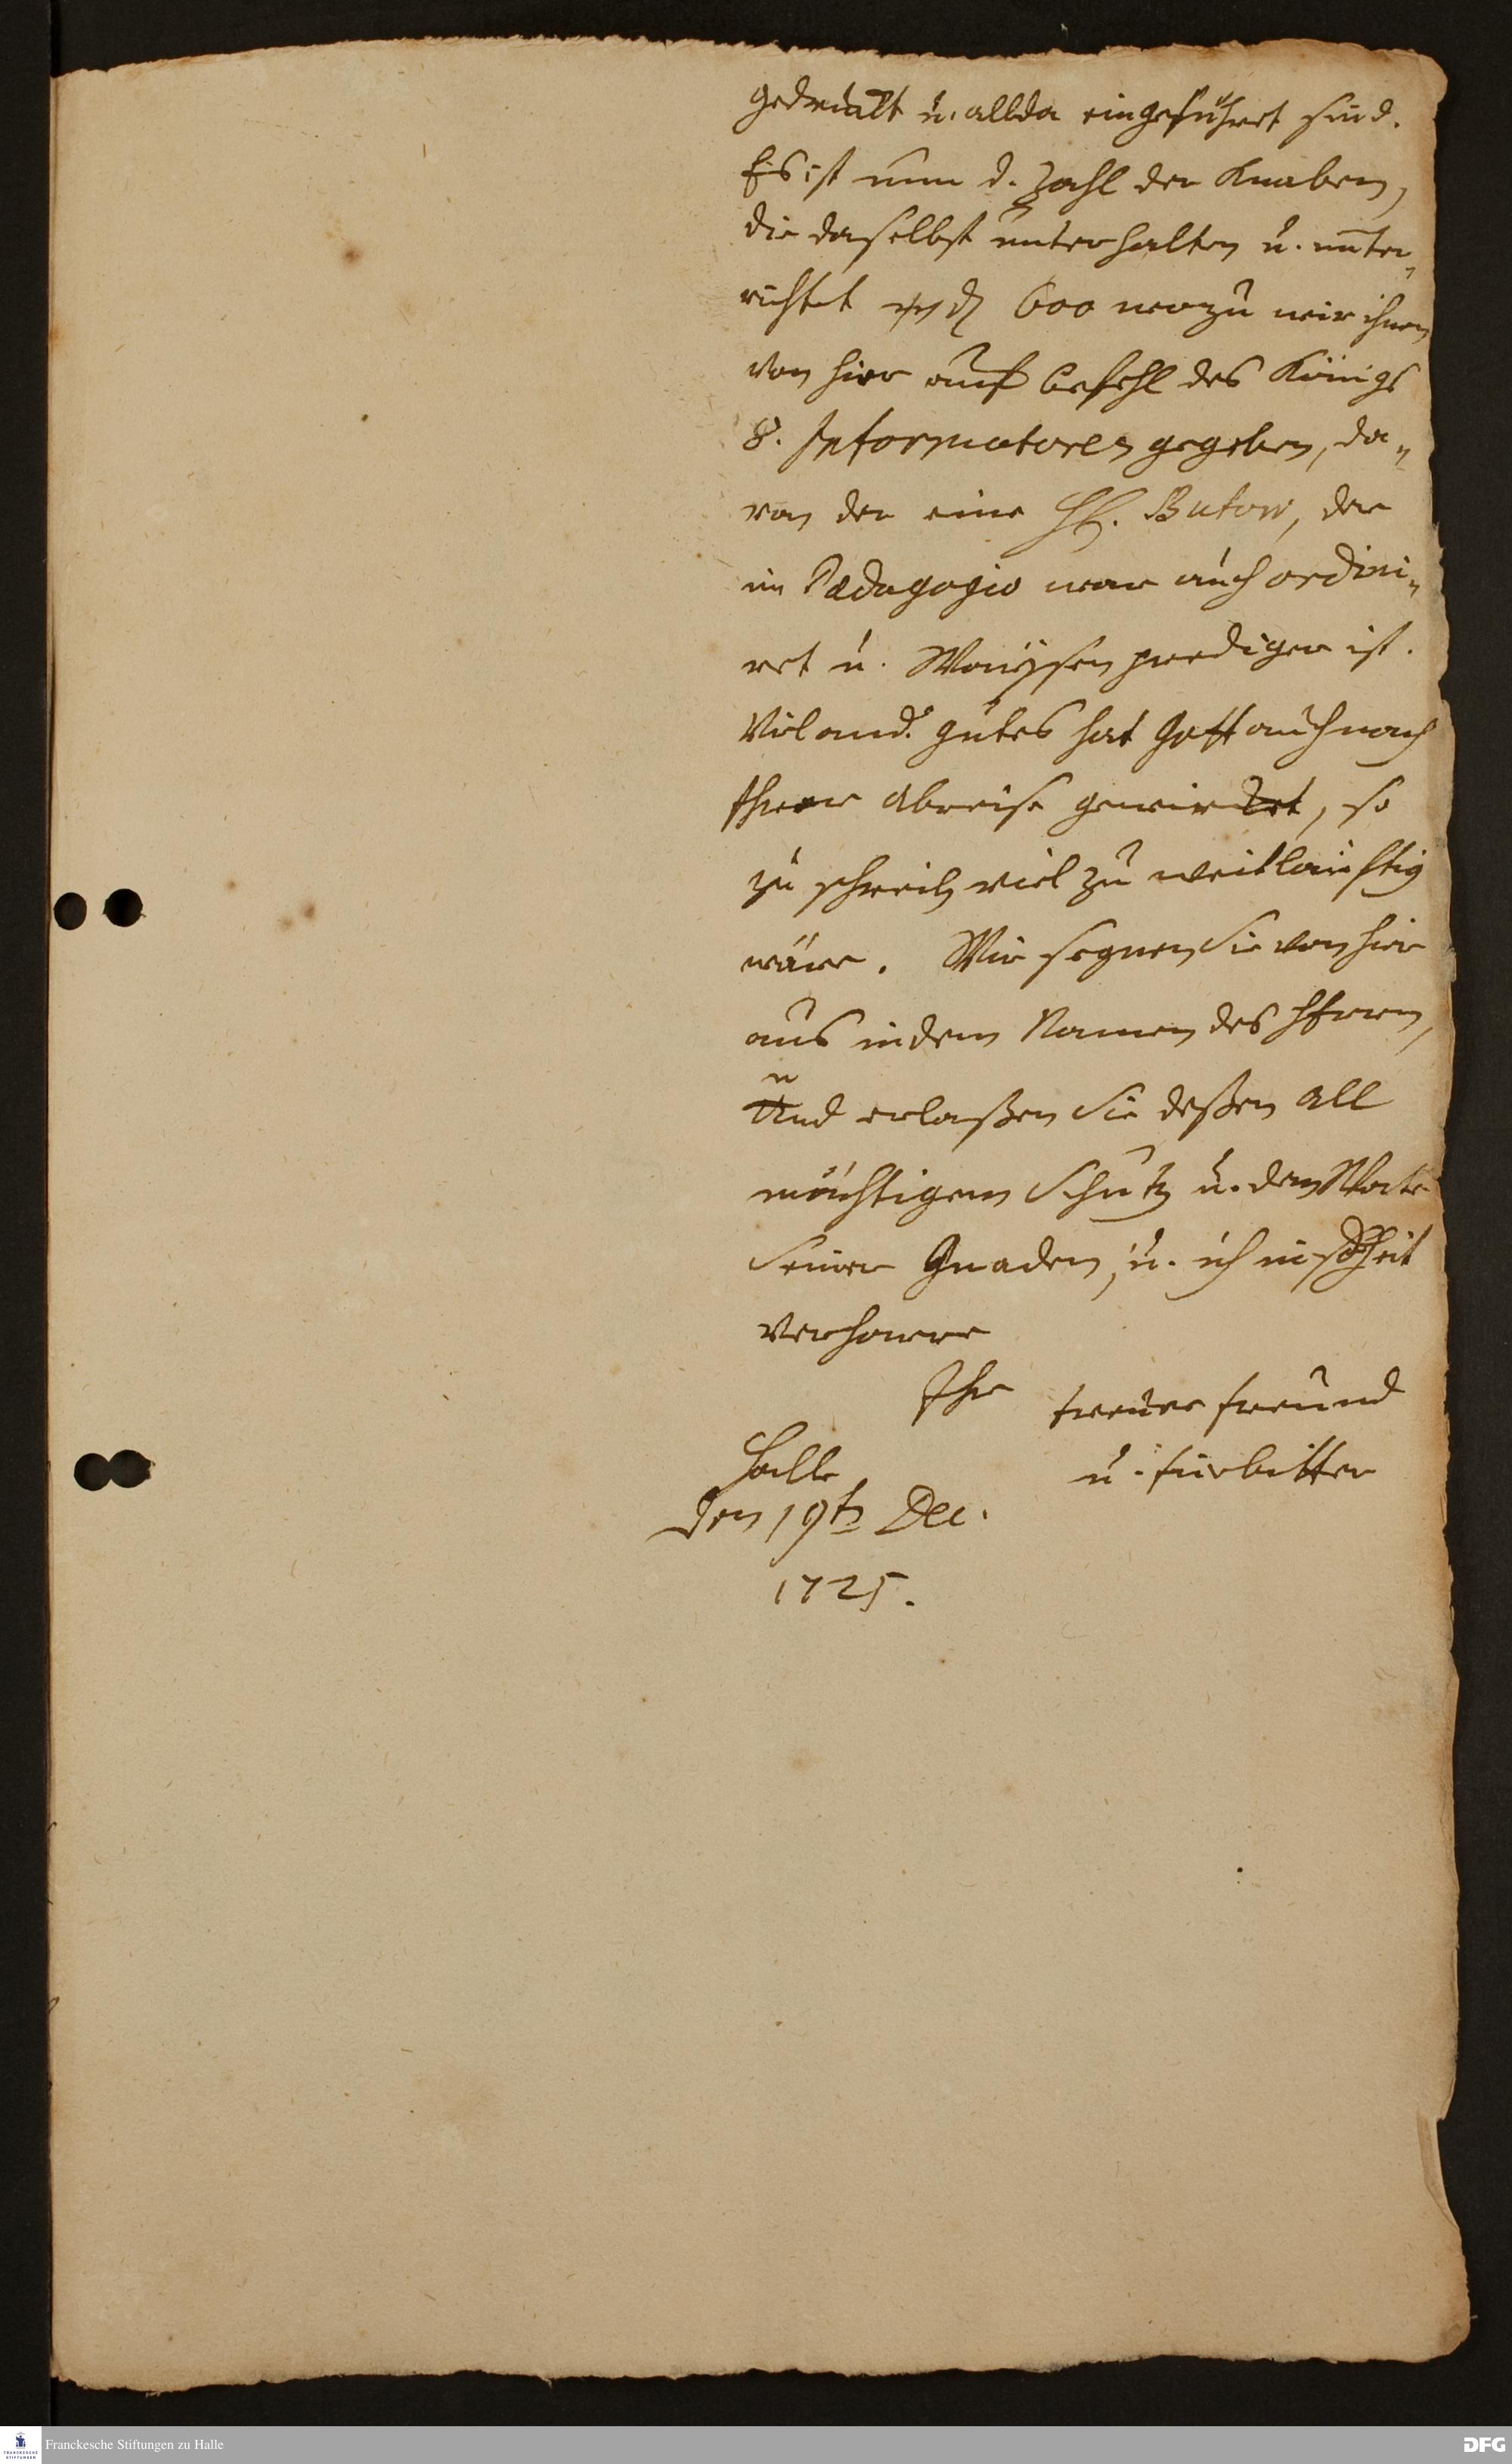 gedruckt u. allda eingeführet sind.
Es ist nun d. Zahl der Knaben,
die daselbst unterhalten u. unter-
richtet 600 wozu wir ihnen
von hier auf befehl des Königs
8. Informatores gegeben, da-
von der eine H. Butow, der
im Pædagogio war auch ordini-
ret u. Waÿsenprediger ist.
Viel and. gutes hat Gott auch nach
Ihrer Abreise gewircket, so
zu schreiben viel zu weitläuftig
wäre. Wir segnen Sie von hier
aus in dem Namen des HErrn,
und erlaßen Sie deßen All
mächtigem Schutz u. dem Worte
Seiner Gnaden, u. ich in
verharre
Ihr treuer freund
u. fürbitter
Halle
den 19ten Dec.
1725.
Franckesche Stiftungen zu Halle
DFG